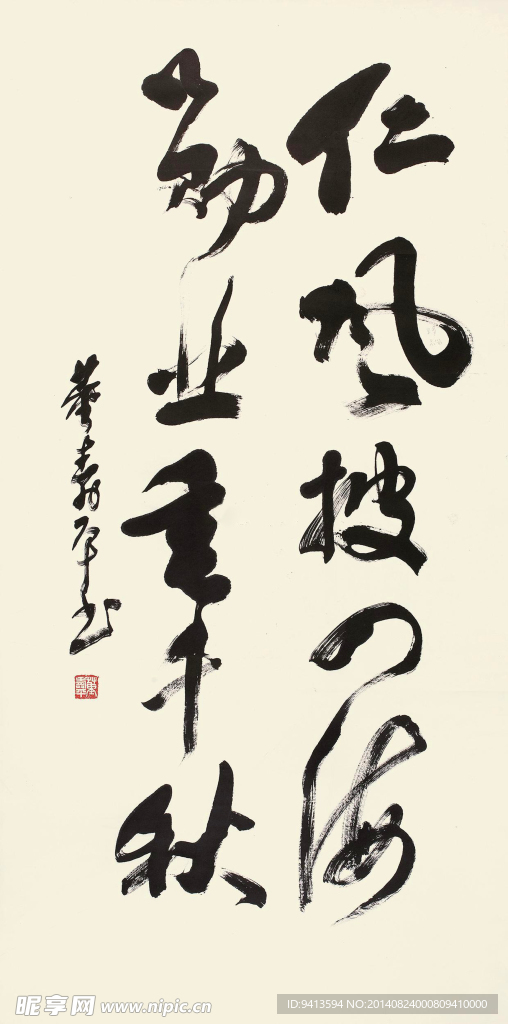 仁风披四海
勋业重千秋
董寿平书
昵享网 www.nipic.cn
ID:9413594 NO:20140824000809410000